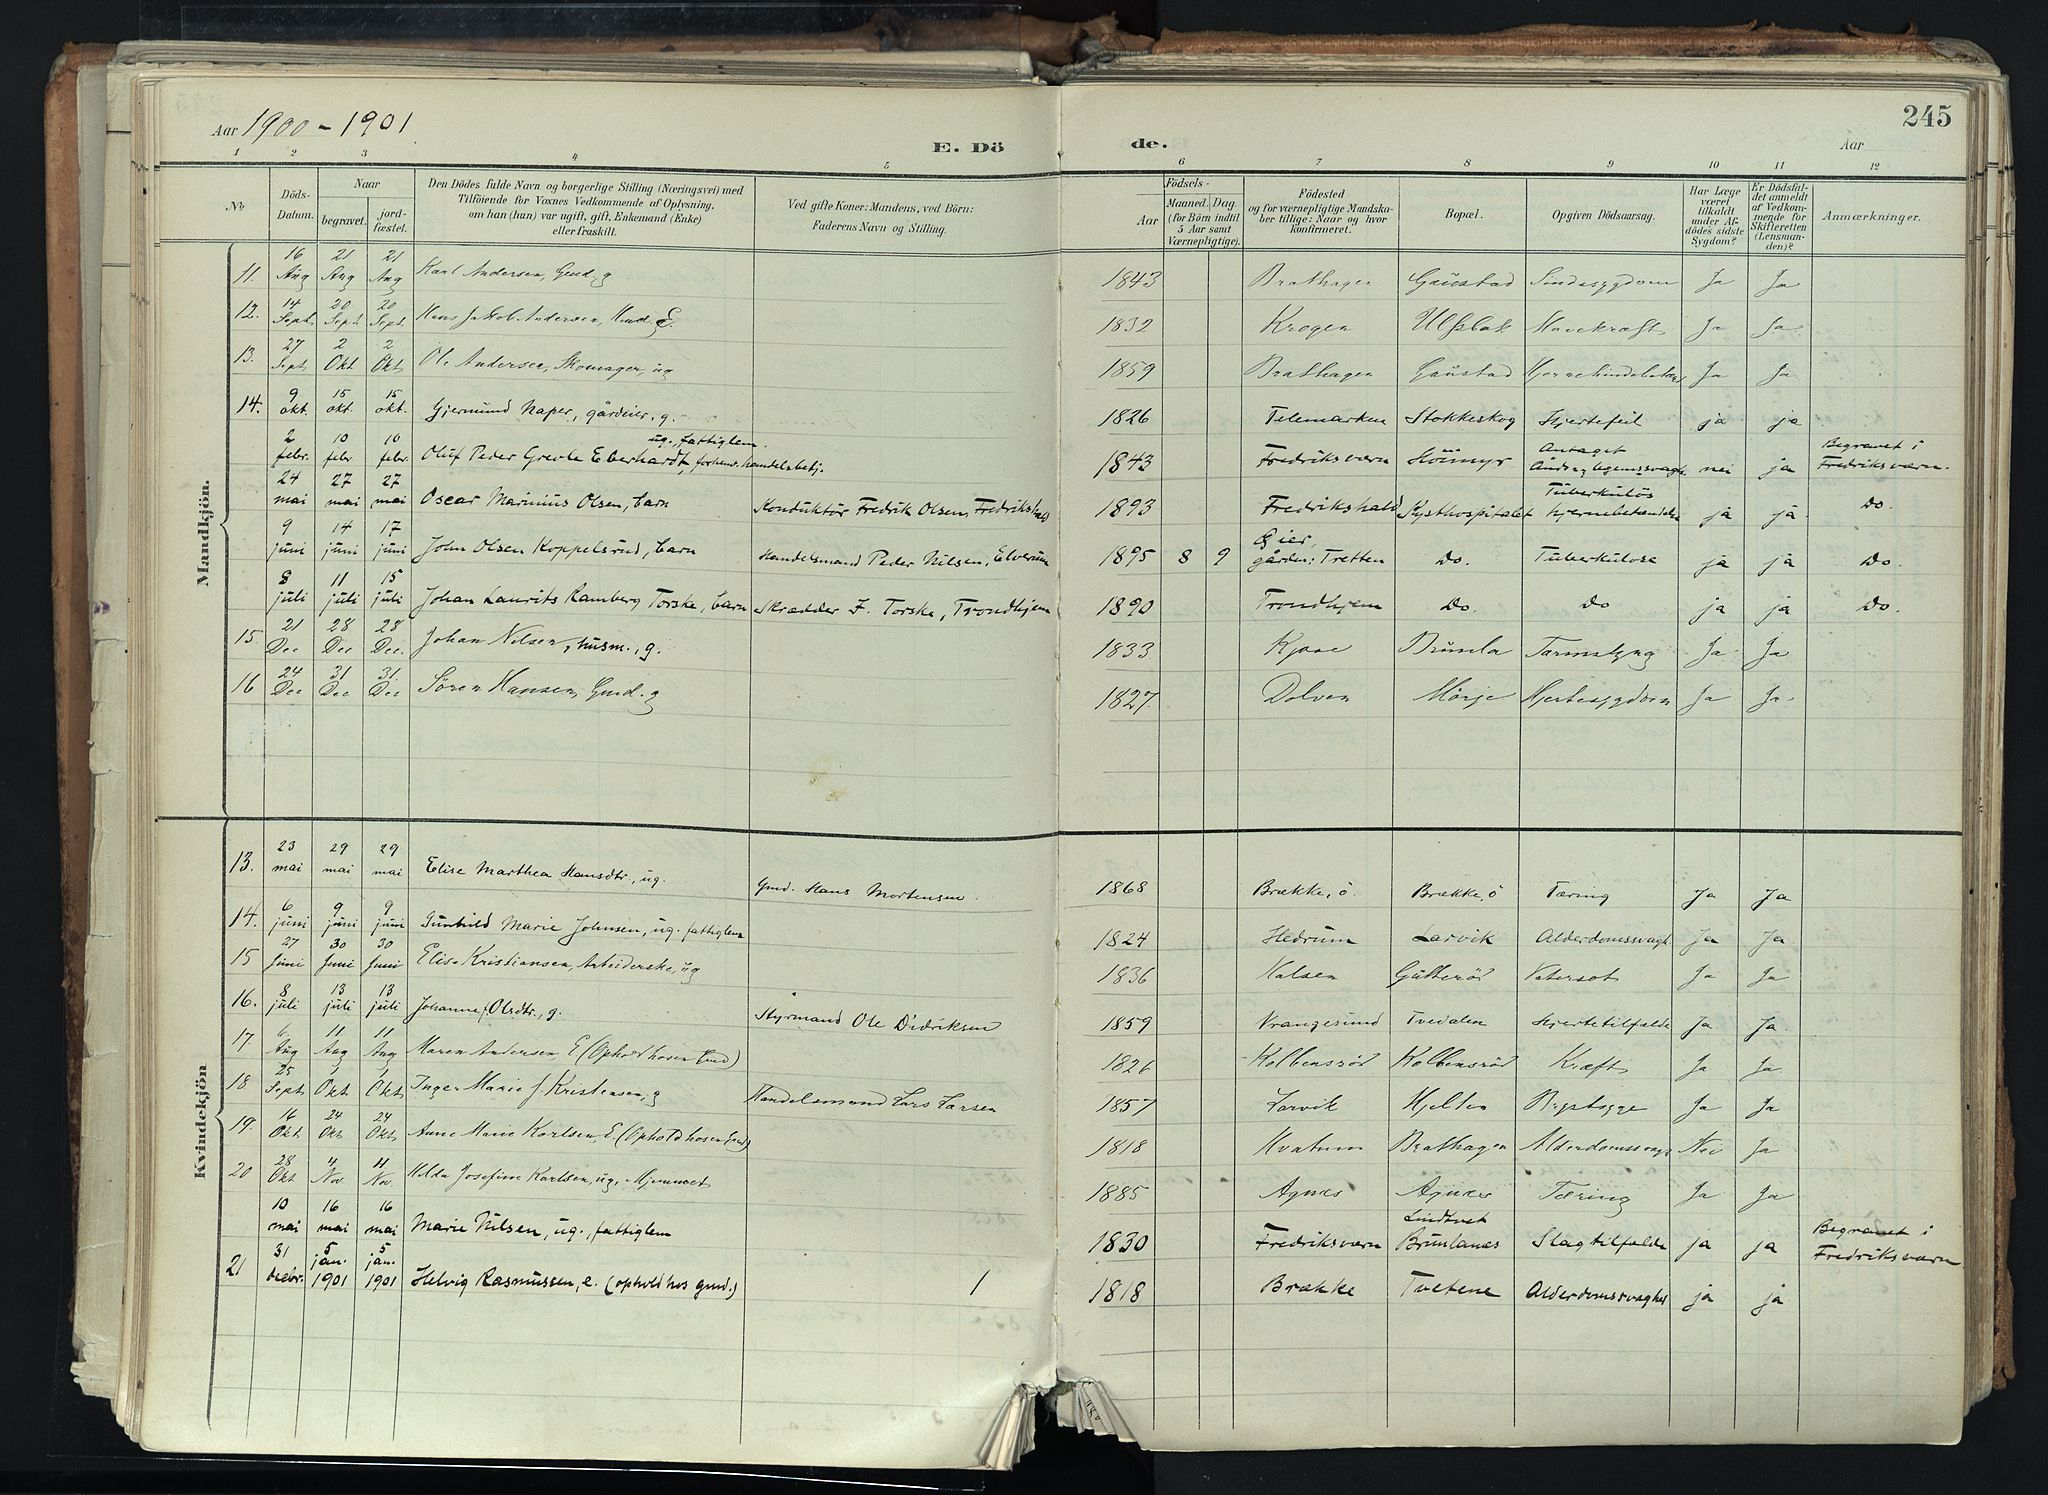 Aar 1900 - 1901
E. Dö de.
Aar
245
1 2 3 4 5 6 7 8 9 10 11 12
No
Döds-Datum.
Naar
begravet.
jord-fæstet.
Den Dödes fulde Navn og borgerlige Stilling (Næringsvei) med
Tilföiende for Voxnes Vedkommende af Oplysning,
om han (hun) var ugift, gift, Enkemand (Enke)
eller fraskilt.
Ved gifte Koner: Mandens, ved Börn:
Faderens Navn og Stilling.
Födsels-
Aar
Maaned. Dag.
(for Börn indtil
5 Aar samt
Værnepligtige).
Födested
og for værnepligtige Mandska-
ber tillige: Naar og hvor
konfirmeret.
Bopæl.
Opgiven Dödsaarsag.
Har Læge
været
tilkaldt
under Af-
dödes sidste
Sygdom?
Er Dödsfal-
det anmeldt
af Vedkom-
mende for
Skifteretten
(Lensman-
den)?
Anmærkninger.
Mandkjön.
11. 16 Aug 21 Aug 21 Aug Karl Andersen, Gmd. g 1843 Brathagen Gaustad Sindssygdom Ja Ja
12. 14 Sept. 20 Sept 20 Sept. Hans Jakob Andersen, Hmd. E. 1832 Krogen Ulfsbak Mavekræft Ja Ja
13. 27 Sept. 2 Okt 2 Okt Ole Andersen, Skomager, ug 1859 Brathagen Gaustad Ja Ja
14. 9 okt. 15 okt. 15 okt. Gjermund Naper, gårdeier, g. 1826 Telemarken Stokkeskog Hjertefeil ja ja
2 febr. 10 febr. 10 febr. Oluf Peder Grevle Eberhardt, forhenv. handelsbetj. ug., fattiglem. 1843 Fredriksværn Höimyr Antaget Ånds og legemssvagh. nei ja Begravet i Fredriksværn.
24 mai 27 mai 27 mai Oscar Marinius Olsen, barn Konduktör Fredrik Olsen, Fredrikshald 1893 Fredrikshald Kysthospitalet Tuberkulös hjernebetændelse ja ja Do.
9 juni 14 juni 17 juni John Olsen Koppelsrud, barn Handelsmand Peder Nilsen, Elverum 1895 8 9 gården: Tretten Do. Tuberkulose ja ja Do.
8 juli 11 juli 15 juli Johan Laurits Ramberg Torske, barn Skrædder F. Torske, Trondhjem 1890 Trondhjem Do. Do ja ja Do.
15 21 Dec 28 Dec 28 Dec. Johan Nilsen, husm., g. 1833 Kjose Brunla Tarmslyng Ja Ja
16 24 Dec 31 Dec 31. Dec Sören Hansen, Gmd. g 1827. Dolven Mörje Hjertesygdom Ja Ja
Kvindekjön
13. 23 mai 29 mai 29 mai Elise Marthea Hansdtr., ug. Gmd. Hans Mortensen. 1868 Brække, ö. Brække, ö Tæring Ja Ja
14. 6 juni 9 juni 9 juni Gunhild Marie Johnsen, ug. fattiglem 1824 Hedrum Larvik Alderdomssvagh. Ja Ja.
15 27 Juni 30 Juni 30 Juni Elise Kristiansen, Arbeiderske, ug 1836 Halsen Gutterød Vatersot Ja Ja
16. 8 juli 13 juli 13 juli Johanne Olsdtr., g. Styrmand Ole Didriksen 1859 Vrangesund Tvedalen Hjertetilfælde Ja Ja.
17 6 Aug 11 Aug 11 Aug Maren Andersen, E (Ophold hos en Gmd) 1826 Kolbensröd Kolbensröd Kræft Ja Ja
18 25 Sept. 1 Okt 1 Okt Inger Marie J. Kristensen, g Handelsmand Lars Larsen 1857 Larvik Hjelten Ja Ja
19. 16 Okt 24 Okt 24 Okt Anne Marie Karlsen, E. (Ophold hos en Gmd) 1818 Kvatum Brathagen Alderdomssvagh Nei Ja
20 28 Okt 4 Nov 4 Nov Hilda Josefine Karlsen, ug., Hjemmet 1885 Agnæs Agnæs Tæring Ja Ja
10 mai 16 mai 16 mai Marie Nilsen, ug., fattiglem 1830 Fredriksværn Brunlanæs Slagtilfælde ja ja Begravet i Fredriksværn.
21 31 decbr. 5 jan. 1901 5 jan. 1901 Helvig Rasmussen, e. (ophold hos gmd.) 1 1818 Brække Tvetene Alderdomssvaghed ja ja